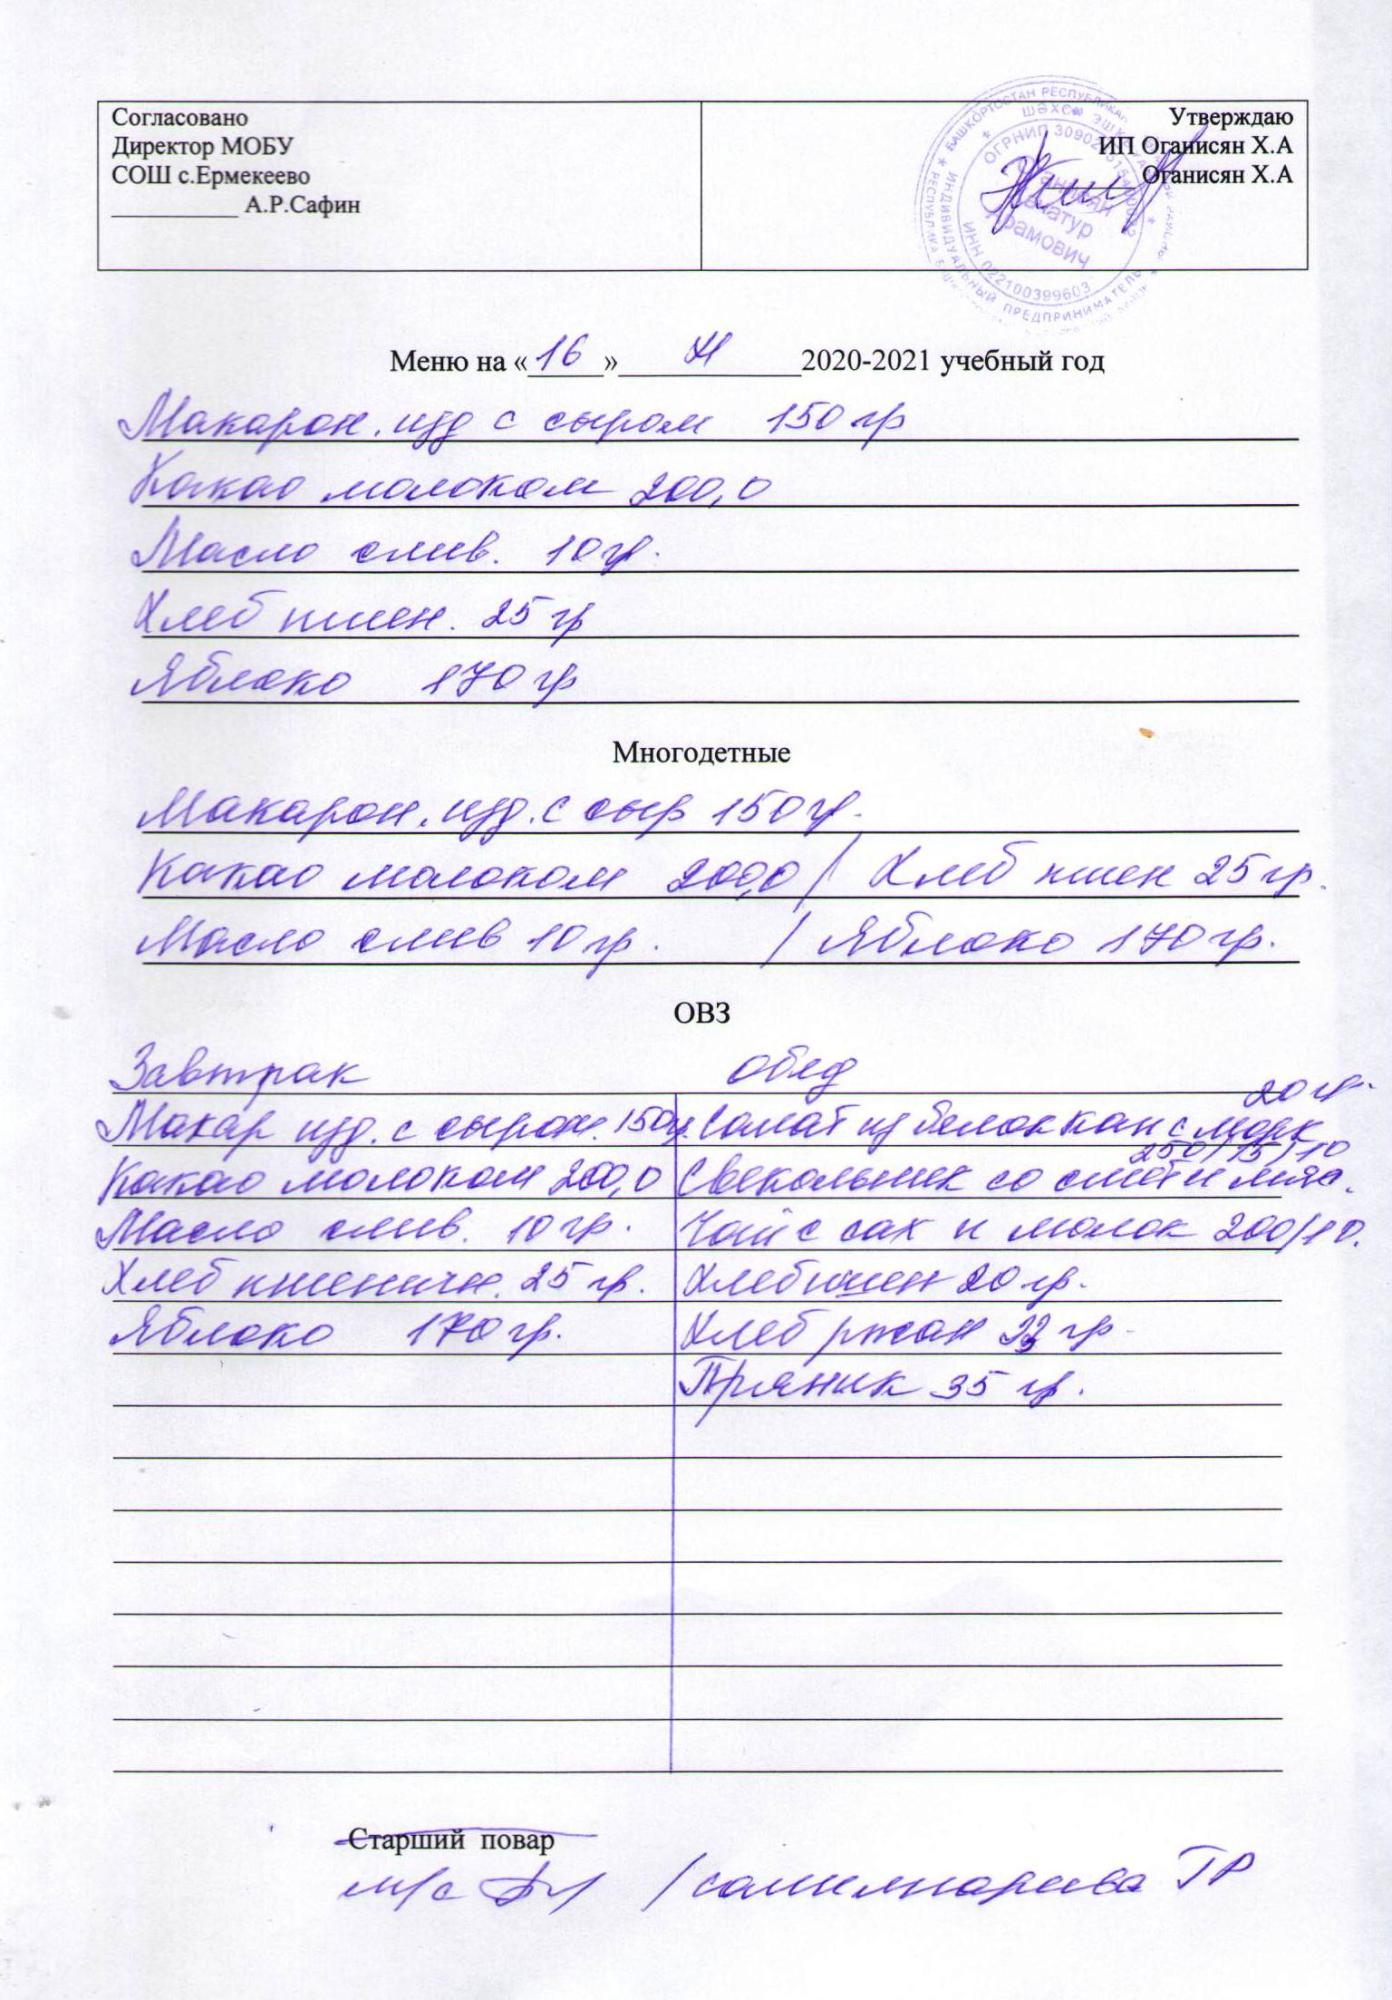 Согласовано
Директор МОБУ
СОШ с.Ермекеево
__________ А.Р.Сафин
Утверждаю
ИП Оганисян Х.А
Оганисян Х.А
БАШКОРТОСТАН РЕСПУБЛИКАҺЫ
ОГРНИП
Оганисян
Хачатур
Арамович
ИНН 022100399603
ИНДИВИДУАЛЬНЫЙ ПРЕДПРИНИМАТЕЛЬ
Меню на «16» 2020-2021 учебный год
Макарон. изд с сыром 150 гр
Какао молоком 200,0
Масло слив. 10 гр.
Хлеб пшен. 25 гр
Яблоко 170 гр
Многодетные
Макарон. изд. с сыр 150 гр.
Какао молоком 200,0 / Хлеб пшен 25 гр.
Масло слив 10 гр. / Яблоко 170 гр.
ОВЗ
Завтрак Обед
Макар изд. с сыром. 150 гр. Салат из белок кап с морк 20 гр.
Какао молоком 200,0 Свекольник со смет и мяс. 250/15/10
Масло слив. 10 гр. Чай с сах и молок 200/10.
Хлеб пшеничн. 25 гр. Хлеб пшен 20 гр.
Яблоко 170 гр. Хлеб ржан гр.
Пряник 35 гр.
Старший повар
м/с / ГР